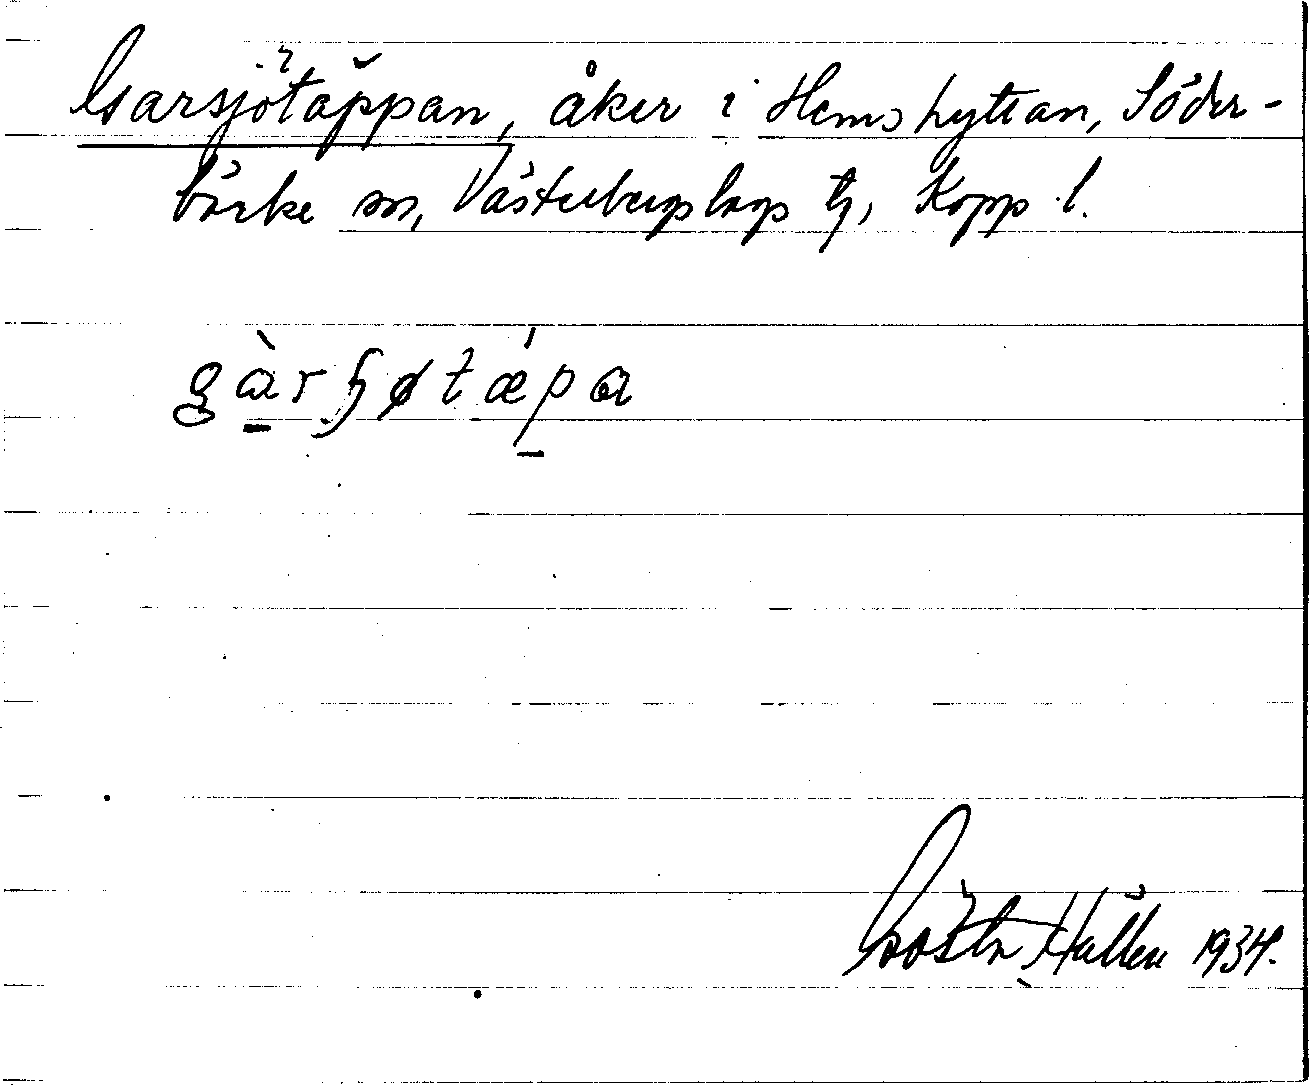 Garsjötäppan, åker i Hemshyttan, Söder-
bärke sn, Västerbergslags tg, Kopp. l.
gàrʃøtǽpa
Gösta Hallen 1934.